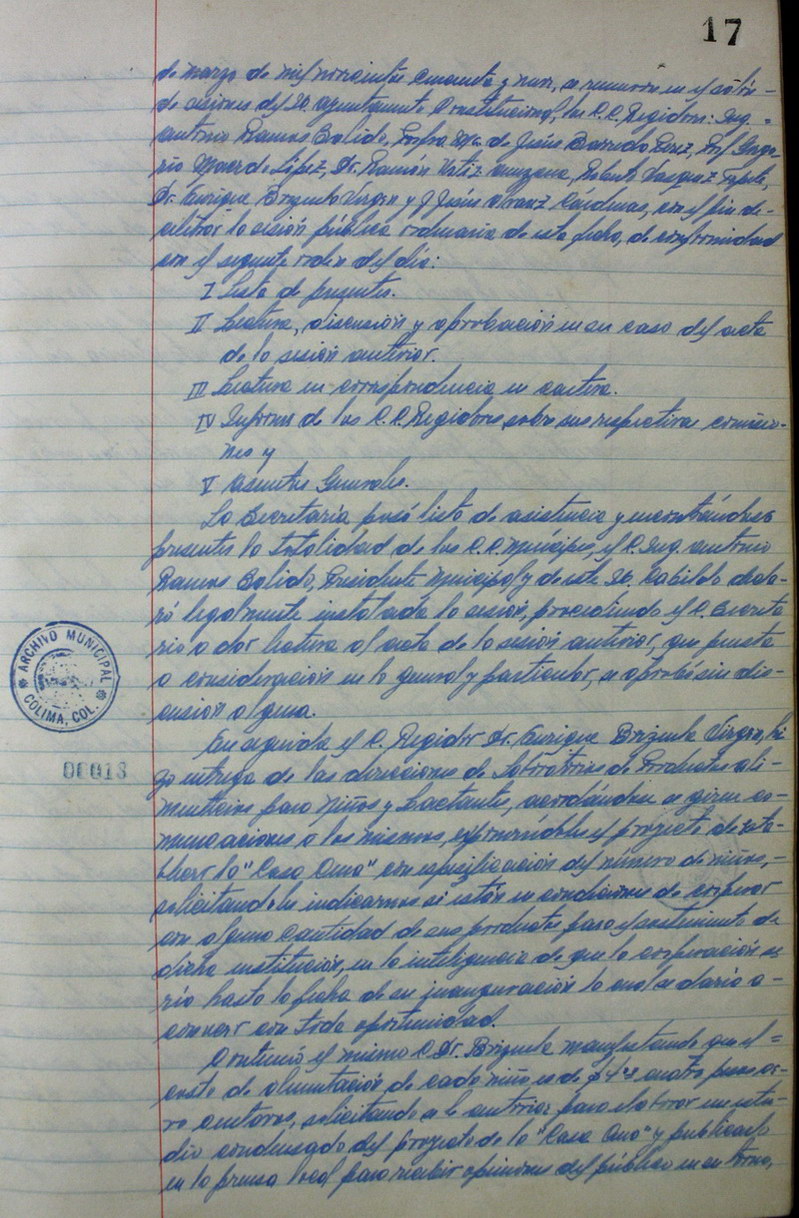 17
de marzo de mil novecientos cincuenta y nueve, se reunieron en el salón
de sesiones del H. Ayuntamiento Constitucional, los C.C. Regidores: Ing.
Antonio Ramos Salido, Profra. Ma. de Jesús Pérez, Prof. Grego-
rio López, Dr. Ramón Ortiz, Roberto Vázquez
Dr. Enrique Brizuela Virgen y J. Jesús Cárdenas, con el fin de
celebrar la sesión pública ordinaria de esta fecha, de conformidad
con el siguiente orden del día:
I Lista de presentes.
II Lectura, discusión y aprobación en su caso del acta
de la sesión anterior.
III Lectura en correspondencia en cartera.
IV Informes de los C.C. Regidores sobre sus respectivas comisio-
nes y
V Asuntos Generales.
La Secretaría pasó lista de asistencia y encontrándose
presentes la totalidad de los C.C. Munícipes, el C. Ing. Antonio
Ramos Salido, Presidente Municipal y de este H. Cabildo decla-
ró legalmente instalada la sesión, procediendo el C. Secreta
rio a dar lectura al acta de la sesión anterior, que puesta
a consideración en lo general y particular, se aprobó sin dis-
cusión alguna.
ARCHIVO MUNICIPAL
COLIMA, COL.
En seguida el C. Regidor Dr. Enrique Brizuela Virgen, hi
00013
zo entrega de las direcciones de Laboratorios de Productos ali-
menticios para niños y Lactantes, acordándose se giren co-
municaciones a los mismos, exponiéndoles el proyecto de esta-
blecer la "Casa Cuna" con especificación del número de niños,-
solicitándoles indicarnos si están en condiciones de cooperar
con alguna cantidad de sus productos para el sostenimiento de
dicha institución, en la inteligencia de que la cooperación se
ría hasta la fecha de su inauguración la cual se daría a-
conocer con toda oportunidad.
Continuó el mismo C. Dr. Brizuela manifestando que el=
costo de alimentación de cada niño es de $4.00 cuatro pesos ce-
ro centavos, solicitando se le autorice para elaborar un estu-
dio condensado del proyecto de la "Casa Cuna" y publicarlo
en la prensa local para recibir opiniones del público en su torno,